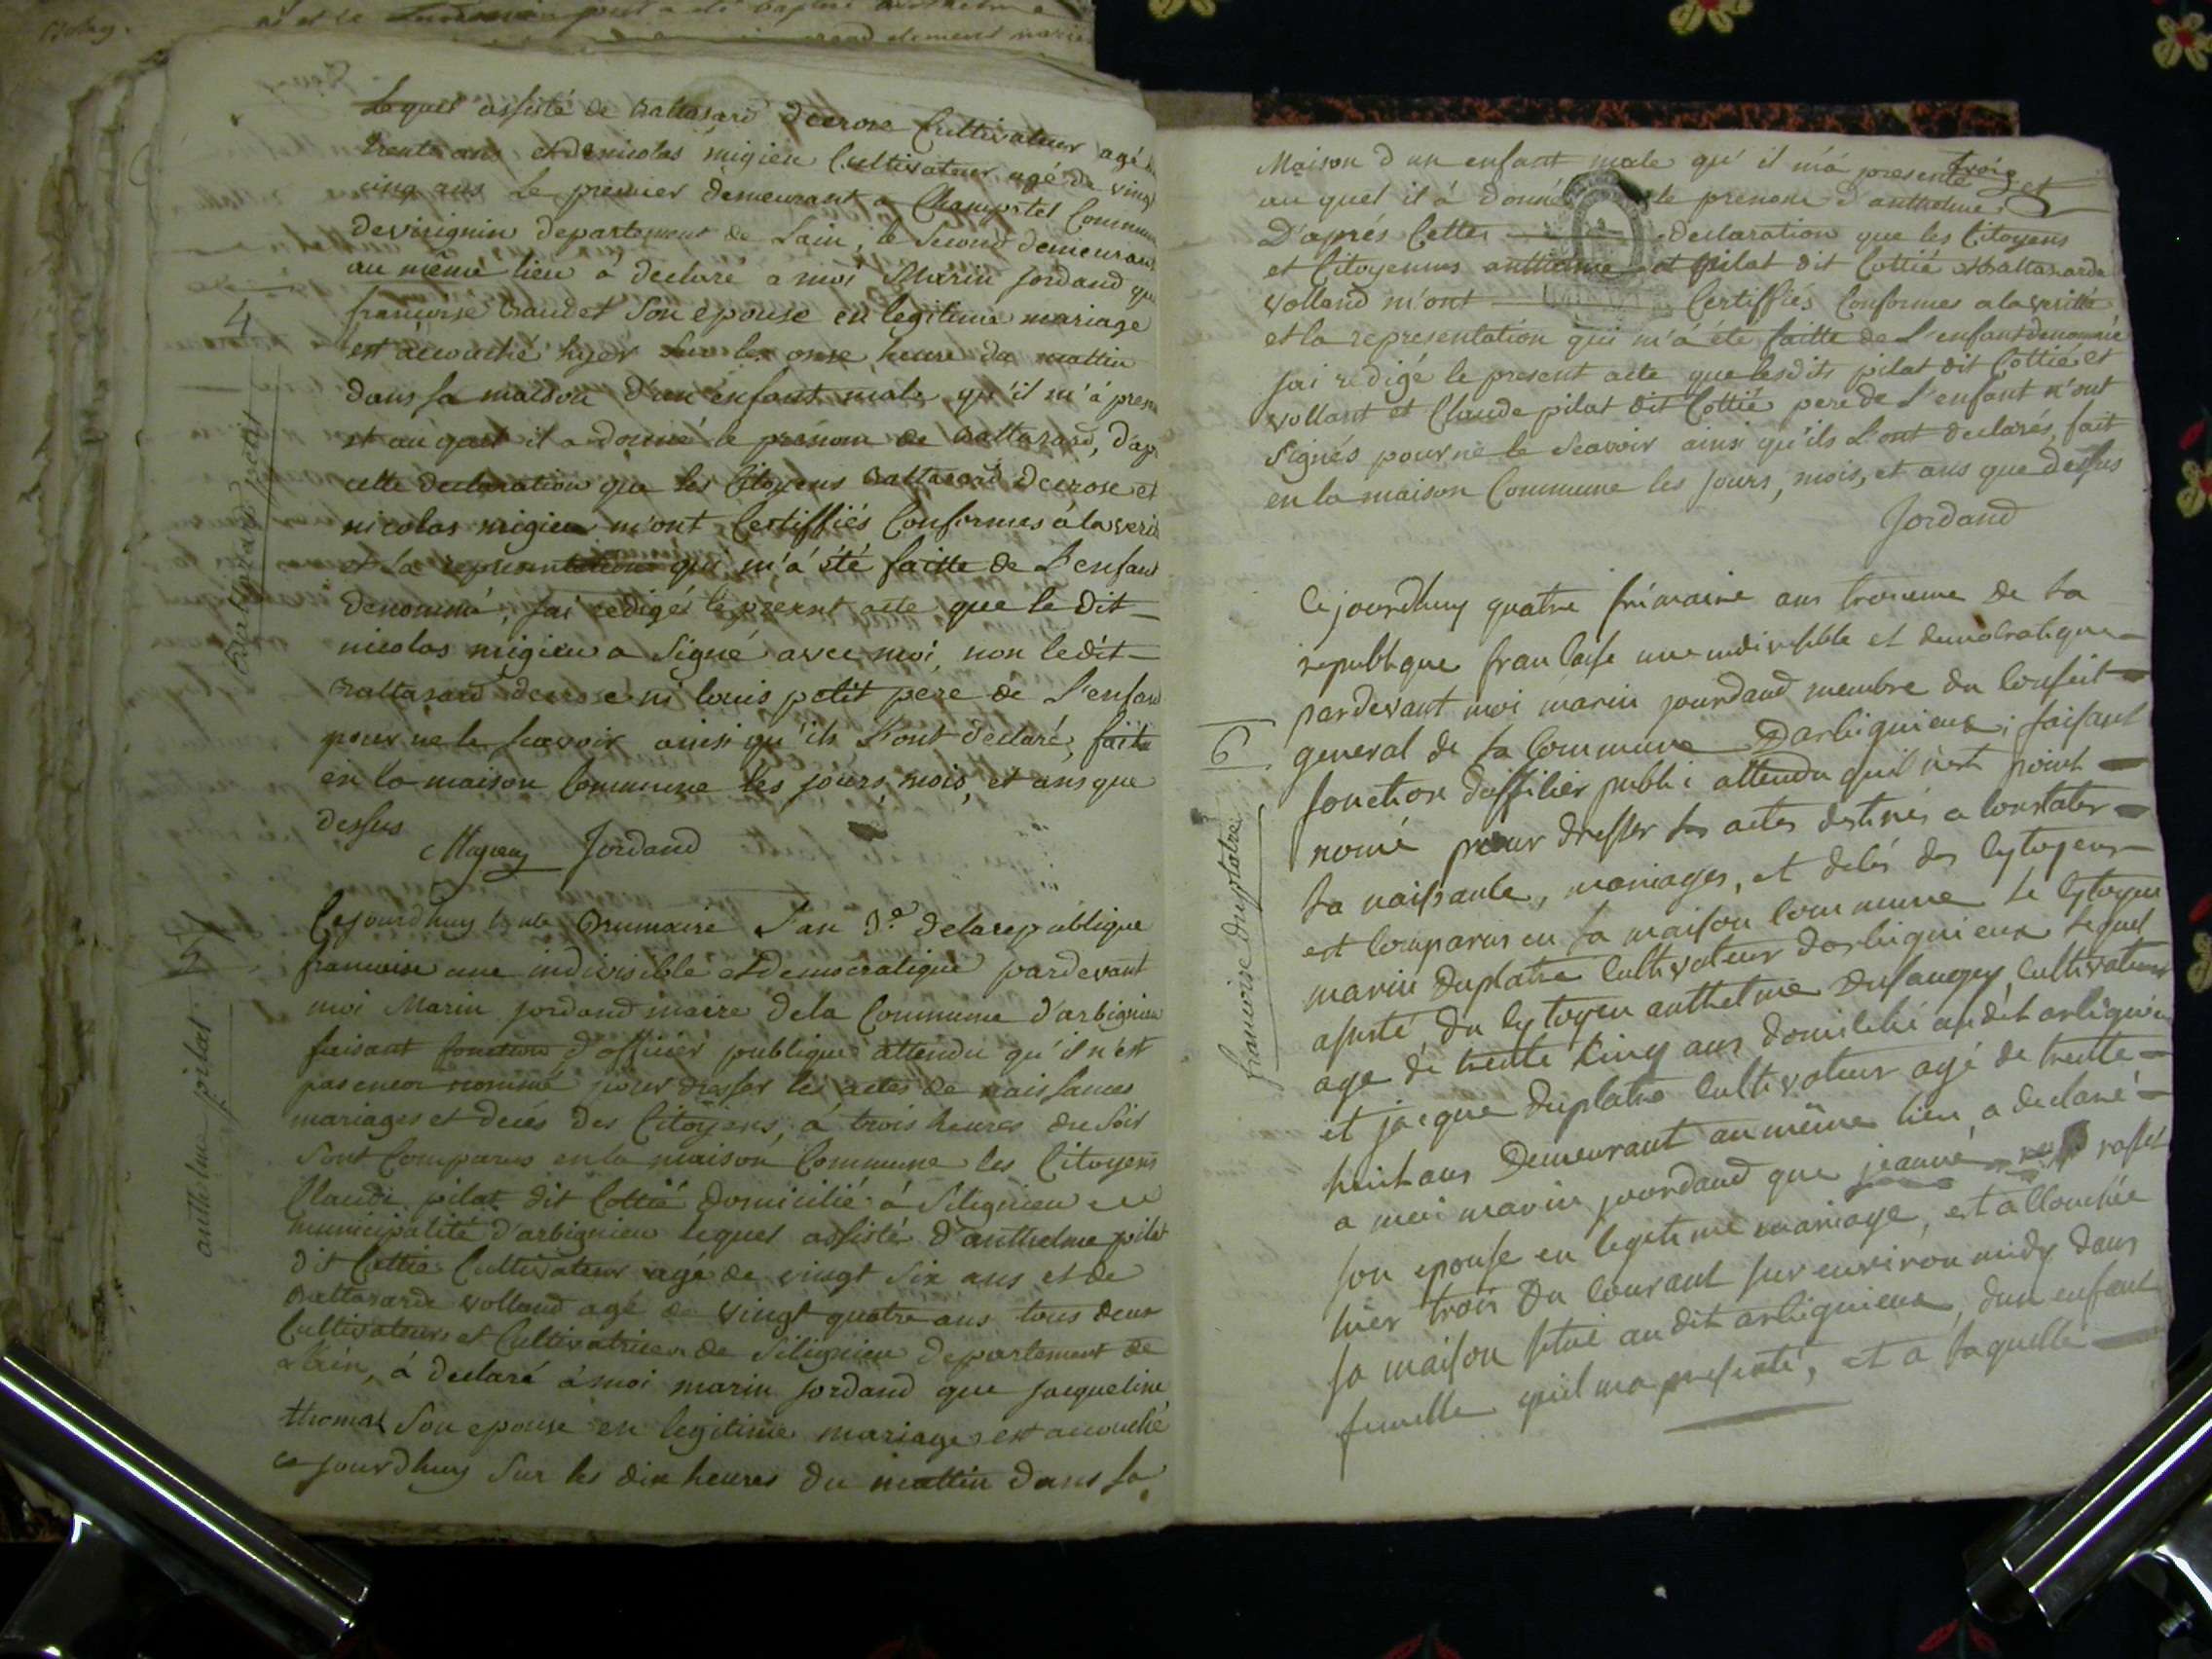 Lequel assisté de Baltasard decrose Cultivateur agé de
trente ans et de nicolas migieu Cultivateur agé de vingt
cinq ans le premier demeurant a Champstel Commune
devirignin departement de Lain, le second demeurant
au même lieu à declaré a moi Marin Jordand que
francoise baudet son epouse en legitime mariage
est accouché hyer sur les onse heure du mattin
dans sa maison d'un enfant male qu'il m'à pres
et au quel il a donné le prénom de Baltazard, d'apr
cette declaration que les Citoyens Baltasard decrose et
nicolas migieu m'ont Certiffiés Conformes à la veri
et la representation qui m'à été faitte de L'enfant
denommé, j'ai redigés le present acte que le dit
nicolas migieu a signé avec moi, non ledit
Baltasard decrose ni louis petit pere de L'enfan
pour ne le scavoir ainsi qu'ils L'ont declaré, faite
en la maison Commune les jours, mois, et ans que
dessus
Jordand
4
5
anthelme pilat
Cejourdhuy trente Brumaire L'an 3.e dela republique
francoise une indivisible et democratique pardevant
moi Marin jordand maire dela Commune d'arbignieu
faisant fonction d'officier publique attendu qu'il n'est
pas encor nommé pour dresser les actes de naissances
mariages et decés des Citoyens, à trois heures du soir
sont Comparus en la maison Commune les Citoyens
Claude pilat dit Cottié domicilié à Silignieu
municipalité d'arbignieu lequel assisté d'anthelme pilat
dit Cottié Cultivateur agé de vingt six ans et de
Baltasarde volland agé de vingt quatre ans tous deux
Cultivateurs et Cultivatrices de Silignieu departement de
Lain, à declaré à moi marin jordand que jacqueline
thomas son epouse en legitime mariage est accouché
ce jourdhuy sur les dix heures du mattin dans sa
Maison d'un enfant male qu'il m'à presenté et
au quel il à donné le prenom d'anthelme
D'aprés Cette declaration que les Citoyens
et Citoyennes anthelme pilat dit Cottié et Baltazarde
volland m'ont Certiffiés Conformes a la veritté
et la representation qui m'à été faitte de L'enfant denommé
jai redigé le present acte que lesdits pilat dit Cottié et
vollant et Claude pilat dit Cottié pere de L'enfant n'ont
signés pour ne le scavoir ainsi qu'ils L'ont declarés, fait
en la maison Commune les jours, mois, et ans que dessus
Jordand
6
francoise duplatre
Cejourdhuy quatre frimaire ans troisieme de la
republique francaise une indivisible et democratique
pardevant moi marin jourdand membre du Conseil
general de la Commune Darbignieux, faisant
fonction dofficier public attendu quil nest point
nomé pour dresser les actes destinés a constater
la naissance, mariages, et decés des cytoyens
est comparus en la maison commune le cytoyen
marin Duplatre Cultivateur darbignieux lequel
assisté du cytoyen anthelme Dufaugey Cultivateur
age de trente cinq ans domicilié audit arbignieu
et jacque duplatre Cultivateur agé de trente
huit ans Demeurant au même lieu, a declaré
a moi marin jourdand que jeanne rosset
son epouse en legitime mariage, est accouchée
hier trois Du courant sur environ midy dans
sa maison situé audit arbignieux, dun enfant
femelle quil ma presenté, et a laquelle